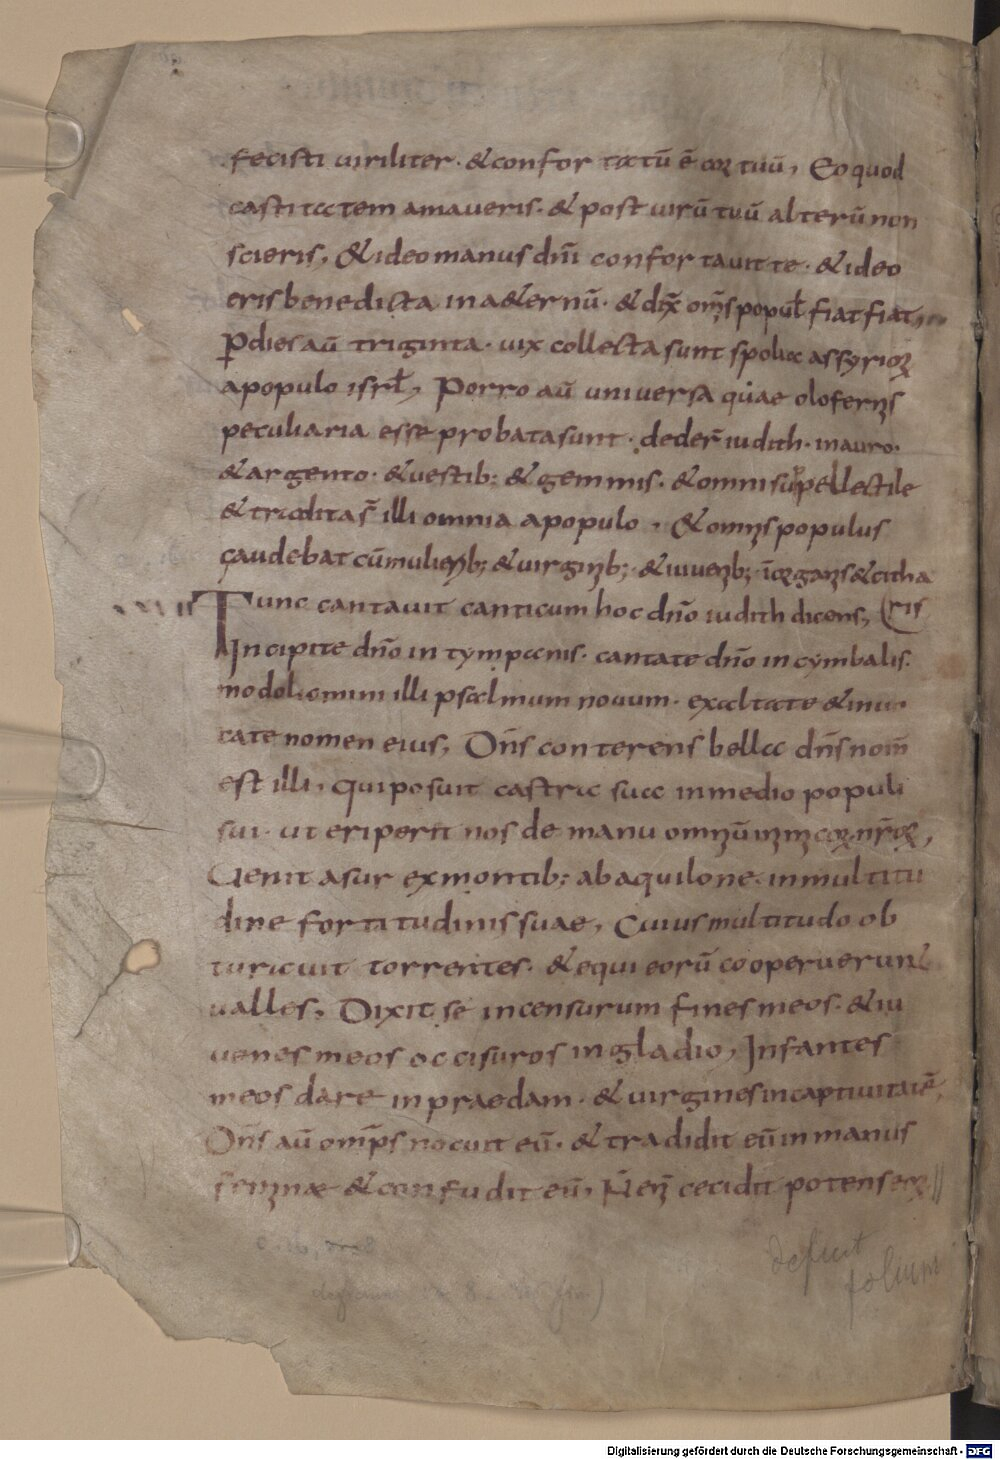 fecisti uiriliter · & confortatū ē cor tuū, Eo quod
castitatem amaueris · & post uirū tuū alterū non
scieris, & ideo manus dn̄i confortauit te · & ideo
eris benedicta in a&ernū · & dix̄ om̄s popul̄ fiat fiat,
P dies aū triginta · uix collecta sunt spolia assyrior
a populo isrl̄, Porro aū uniuersa quae olofernis
peculiaria esse probata sunt · deder̄ iudith · in auro ·
& argento · & uestib; & gemmis · & omni supellectile
& tradita s̄ illi omnia a populo, & omnis populus
gaudebat cū mulierib; & uirginib; · & iuuenib; · ī organis & citha
ris
XVII Tunc cantauit canticum hoc dn̄o iudith dicens,
Incipite dn̄o in tympanis · cantate dn̄o in cymbalis ·
modolamini illi psalmum nouum · exaltate & inuo
cate nomen eius, Dn̄s conterens bella dn̄s nom̄
est illi, qui posuit castra sua in medio populi
sui · ut eriperet nos de manu omniū inimicor nr̄or,
Uenit asur ex montib; ab aquilone · in multitu
dine fortitudinis suae, Cuius multitudo ob
turauit torrentes · & equi eorū cooperuerunt
ualles, Dixit se incensurum fines meos · & iu
uenes meos occisuros in gladio, Infantes
meos dare in praedam · & uirgines in captiuitatē,
Dn̄s aū omp̄s nocuit eū · & tradidit eū in manus
feminae & confudit eū, N̄ eni cecidit potens eor
deficit
folium
Digitalisierung gefördert durch die Deutsche Forschungsgemeinschaft - DFG